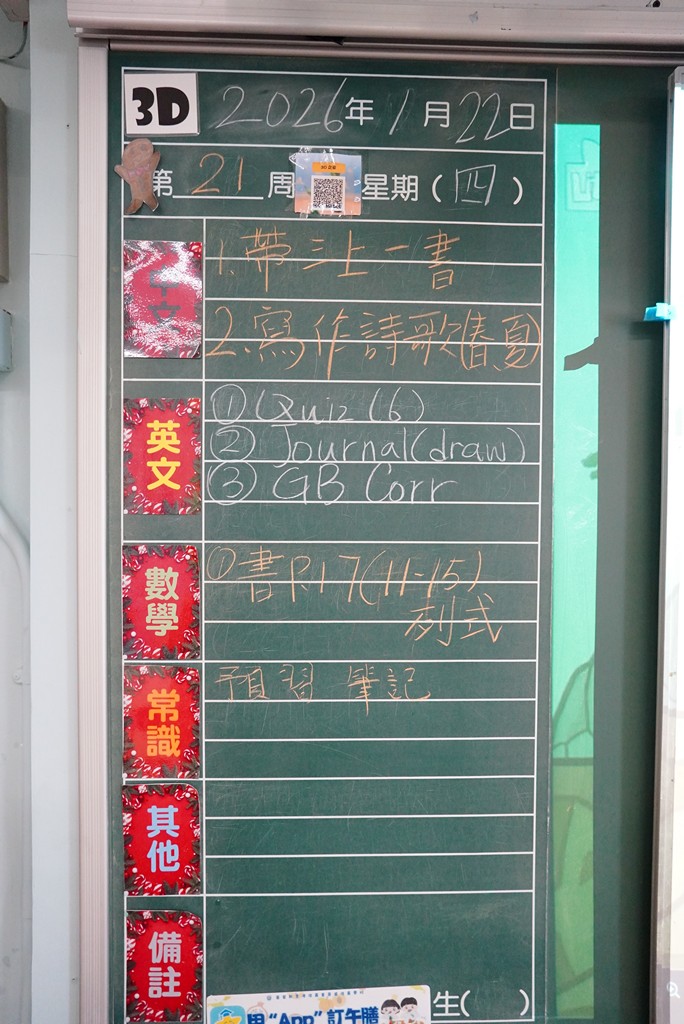 3D 2026年1月22日
第21周 星期(四)
中文
1.帶三上一書
2.寫作詩歌(春夏)
英文
① Quiz (6)
② Journal(draw)
③ GB Corr
數學
① 書P.17(11-15)
列式
常識
預習 筆記
其他
備註
生( )
用“App”訂午膳